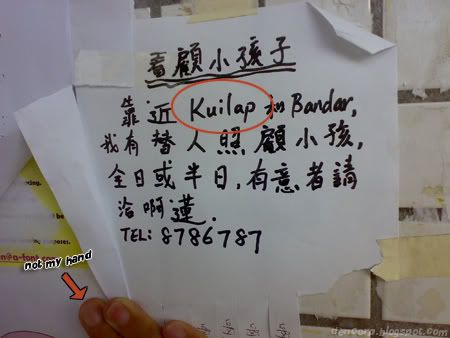 看顧小孩子
靠近 Kuilap 和 Bandar,
我有替人照顧小孩,
全日或半日,有意者請
洽啊蓮.
TEL: 8786787
not my hand